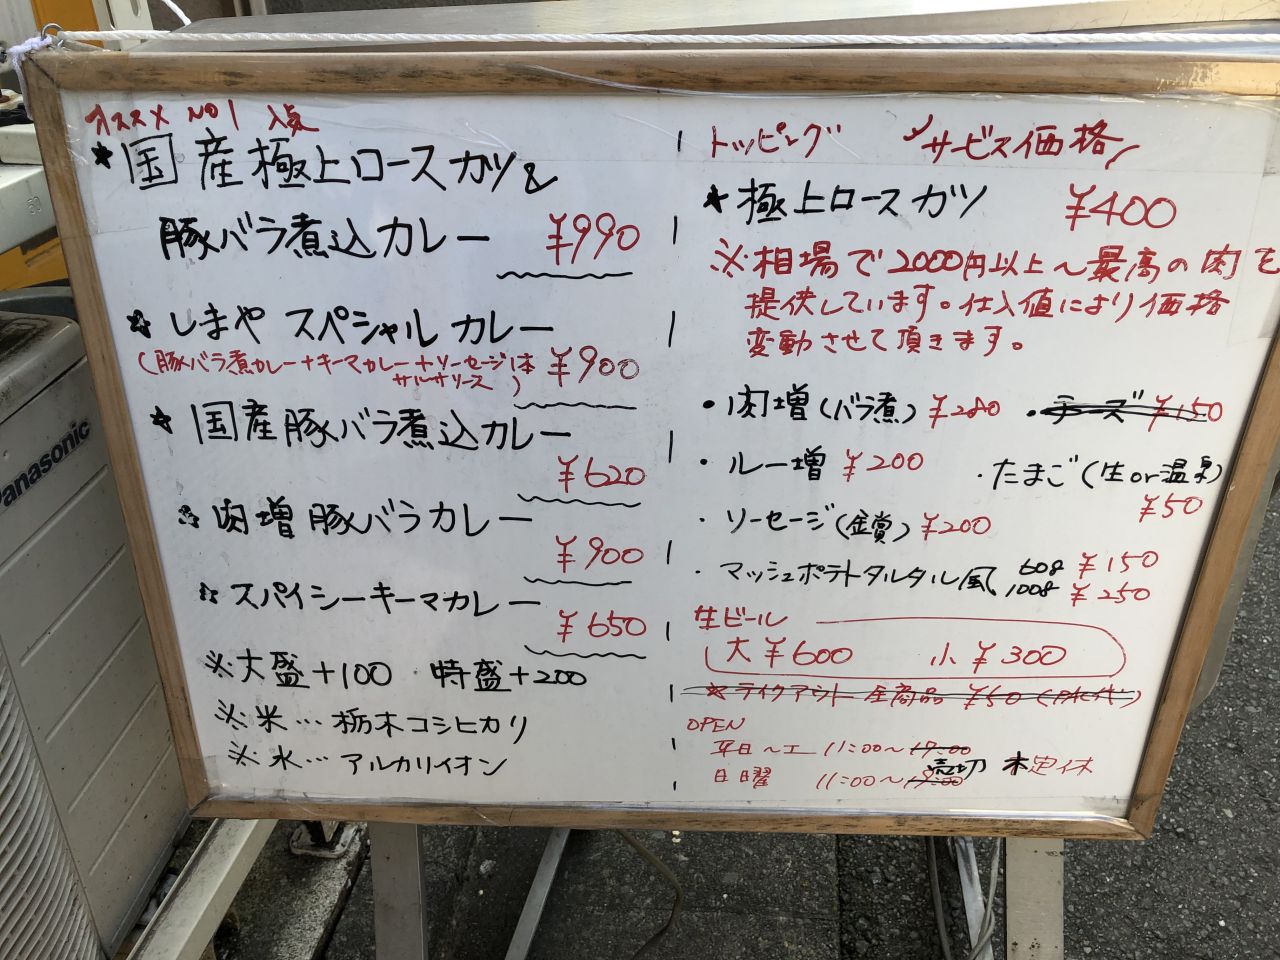 オススメ NO1 入魂
★国産極上ロースカツ&
豚バラ煮込カレー ¥990
☆しまや スペシャル カレー
(豚バラ煮カレー+キーマカレー+ソーセージ1本 サルサソース) ¥900
★国産豚バラ煮込カレー
¥620
☆肉増豚バラカレー
¥900
☆スパイシーキーマカレー
¥650
※大盛+100 特盛+200
※米…栃木コシヒカリ
※水…アルカリイオン
トッピング サービス価格
★極上ロースカツ ¥400
※相場で2000円以上〜最高の肉を
提供しています。仕入値により価格
変動させて頂きます。
・肉増(バラ煮)¥280 ・チーズ ¥150
・ルー増 ¥200 ・たまご(生or温泉)
¥50
・ソーセージ(金賞)¥200
・マッシュポテトタルタル風 60g ¥150
100g ¥250
生ビール
大¥600 小¥300
※テイクアウト 全商品 ¥50(PAC代)
OPEN
平日〜土 11:00〜17:00
日曜 11:00〜 売切 木定休
Panasonic